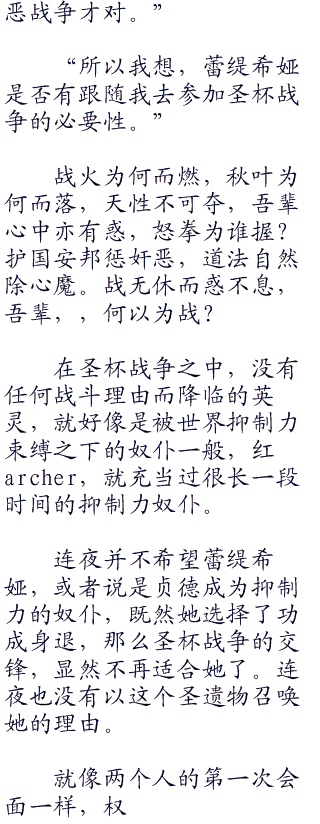 恶战争才对。”
“所以我想，蕾缇希娅
是否有跟随我去参加圣杯战
争的必要性。”
战火为何而燃，秋叶为
何而落，天性不可夺，吾辈
心中亦有惑，怒拳为谁握？
护国安邦惩奸恶，道法自然
除心魔。战无休而惑不息，
吾辈，，何以为战？
在圣杯战争之中，没有
任何战斗理由而降临的英
灵，就好像是被世界抑制力
束缚之下的奴仆一般，红
archer，就充当过很长一段
时间的抑制力奴仆。
连夜并不希望蕾缇希
娅，或者说是贞德成为抑制
力的奴仆，既然她选择了功
成身退，那么圣杯战争的交
锋，显然不再适合她了。连
夜也没有以这个圣遗物召唤
她的理由。
就像两个人的第一次会
面一样，权